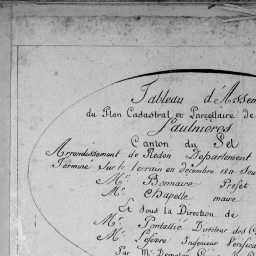 Tableau d'Assem
du Plan Cadastral et Parcellaire de
Saulnieres
Canton du Sel
Arrondissement de Redon Departement
Terminé sur le terrain en décembre
Mr Bonnaire Préfet
Mr Chapelle maire
Et Sous la Direction de
Mr Pontallié Directeur des C
Mr Lefevre Ingenieur Verifica
Par Mr